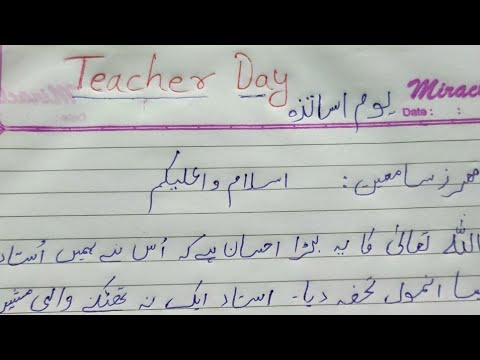 Teacher Day
Miracl
یوم اساتذہ
Date: :
معزز سامعین: اسلام واعلیکم
اللہ تعالیٰ کا یہ بڑا احسان ہے کہ اُس نے ہمیں اُستاد
سا انمول تحفہ دیا۔ استاد ایک نہ تھکنے والی